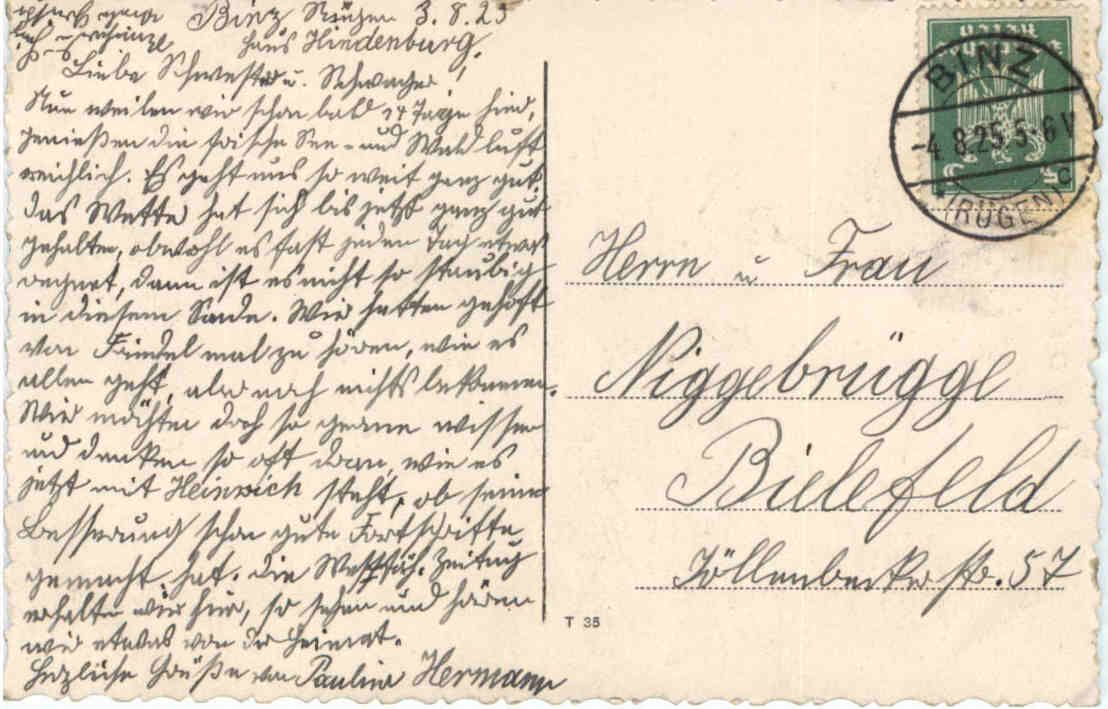 Binz Rügen 3.8.25
Haus Hindenburg.
Liebe Schwester u. Schwager!
Nun weilen wir schon bald 14 Tage hier,
genießen die frische See- und Waldluft
reichlich. Es geht uns so weit ganz gut.
Das Wetter hat sich bis jetzt ganz gut
gehalten, obwohl es fast jeden Tag etwas
regnet, dann ist es nicht so staubig
in diesem Sande. Wir hatten gehofft
von Friedel mal zu hören, wie es
allen geht, aber noch nichts bekommen.
Wir möchten doch so gerne wissen
und denken so oft daran, wie es
jetzt mit Heinrich steht, ob seine
Besserung schon gute Fortschritte
gemacht hat. Die Westfäl. Zeitung
erhalten wir hier, so sehen und hören
wir etwas von der Heimat.
Herzliche Grüße von Pauline Hermann
BINZ
-4.8.25.5-6V
(RÜGEN)
c
Herrn u Frau
Niggebrügge
Bielefeld
Jöllenbeckerstr. 57
T 35